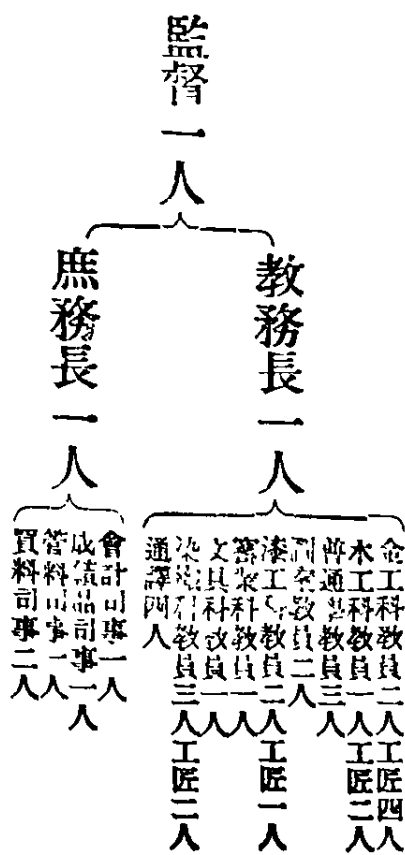 監督一人
教務長一人
金工科教員二人工匠四人
木工科教員一人工匠二人
普通學教員三人
圖案教員二人
漆工科教員二人工匠一人
窰業科教員一人
文具科教員一人
染織科教員三人工匠二人
通譯四人
庶務長一人
會計司事一人
成績品司事一人
管料司事一人
買料司事二人